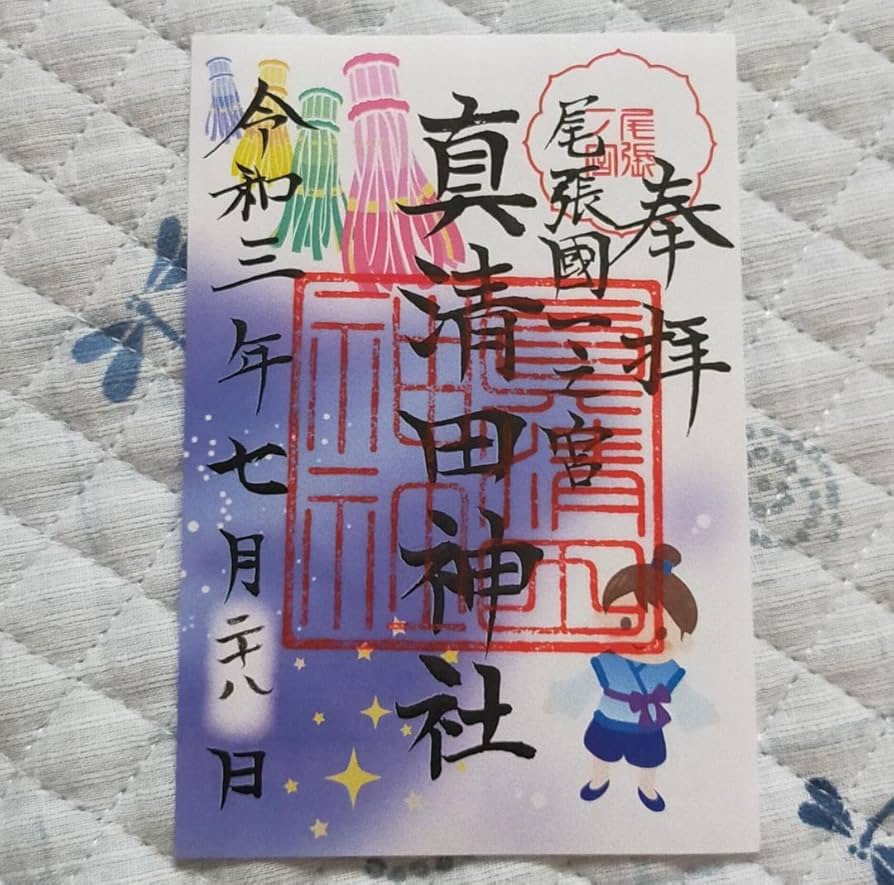 奉拝
尾張國一之宮
真清田神社
令和三年七月二十八日
尾張
一ノ宮
真清田
神社